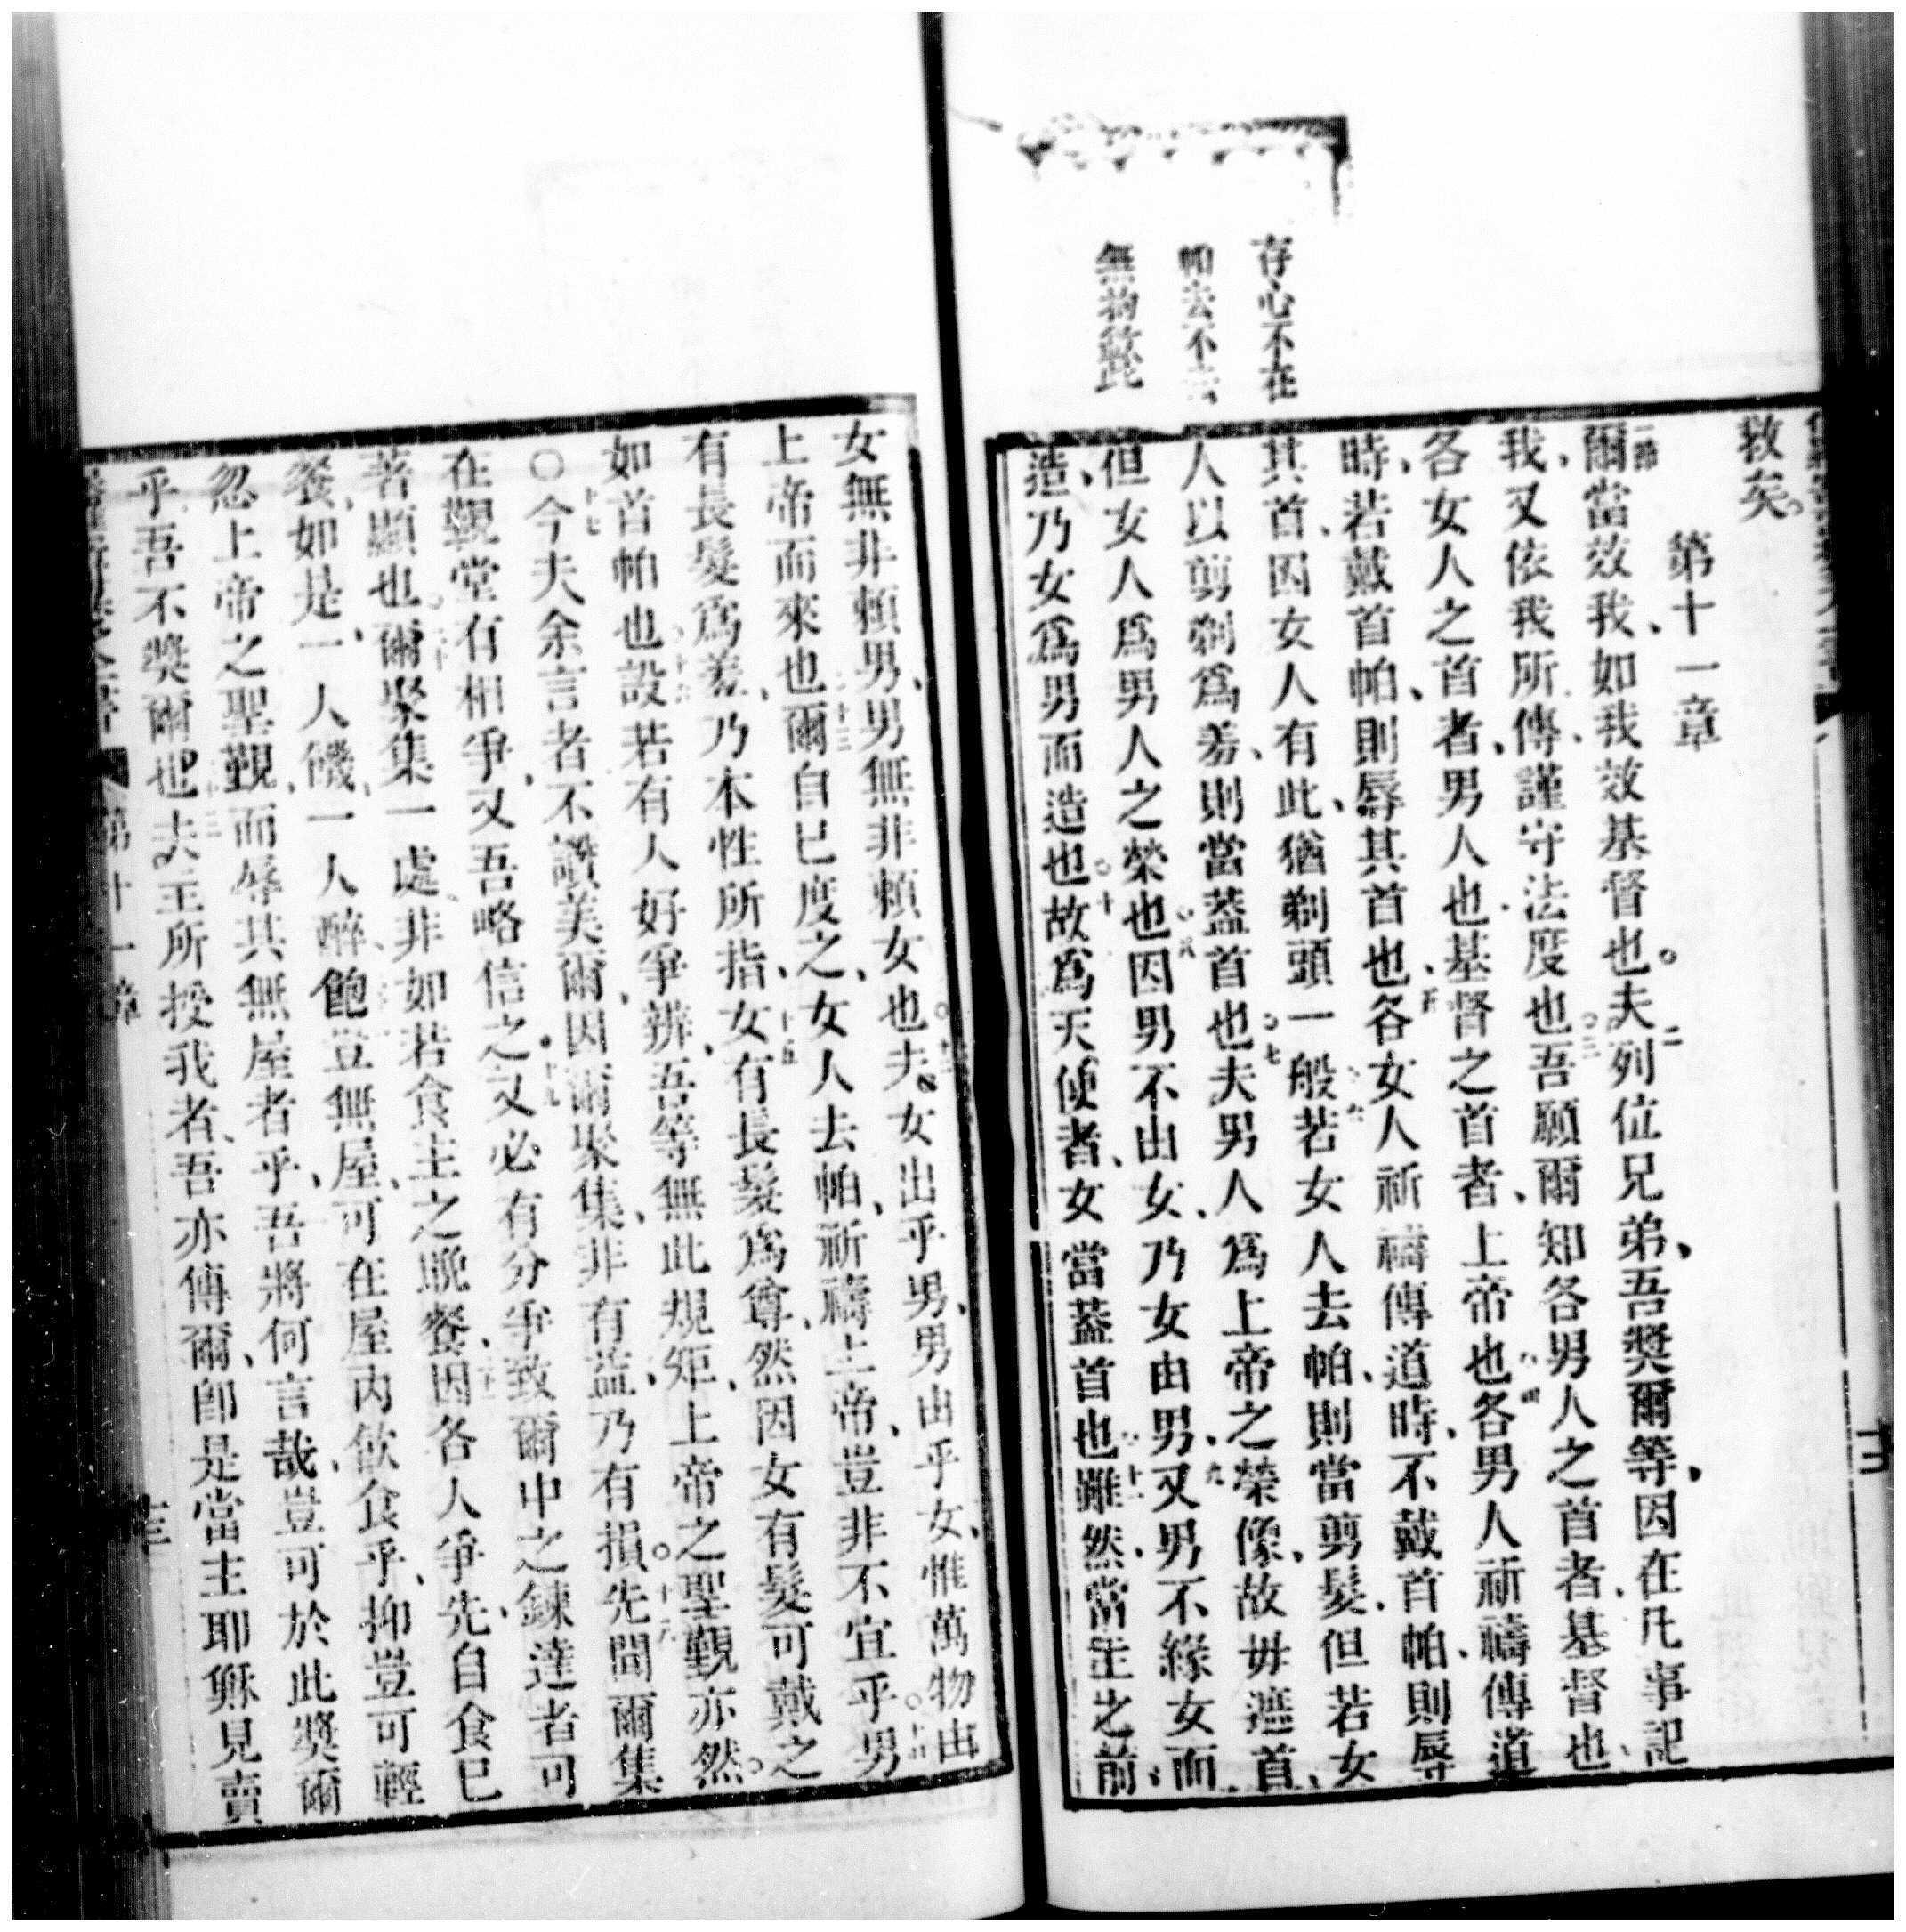 存心不在
帕去不去
無拘欵此
救矣。
第十一章
一節爾當效我、如我效基督也。二夫列位兄弟、吾獎爾等、因在凡事記
我、又依我所傳、謹守法度也。三吾願爾知各男人之首者、基督也、
各女人之首者、男人也、基督之首者、上帝也。四各男人祈禱傳道
時、若戴首帕、則辱其首也、五各女人祈禱傳道時、不戴首帕、則辱
其首、因女人有此、猶剃頭一般。六若女人去帕、則當剪髮、但若女
人以剪剃爲羞、則當蓋首也。七夫男人爲上帝之榮像、故毋遮首、
但女人爲男人之榮也。八因男不由女、乃女由男、九又男不緣女而
造、乃女爲男而造也。十故爲天使者、女當蓋首也。十一雖然、當主之前、
女無非賴男、男無非賴女也。十二夫女出乎男、男由乎女、惟萬物由
上帝而來也。十三爾自己度之、女人去帕、祈禱上帝、豈非不宜乎。十四男
有長髮爲羞、乃本性所指、十五女有長髮爲尊、然因女有髮可戴之
如首帕也。十六設若有人好爭辨、吾等無此規矩、上帝之聖觀亦然。
○十七今夫余言者、不讚美爾、因爾聚集、非有益、乃有損。十八先聞爾集
在觀堂有相爭、又吾略信之。十九又必有分爭、致爾中之鍊達者可
著顯也。二十爾聚集一處、非如若食主之晚餐、二十一因各人爭先自食已
餐、如是、一人饑、一人醉飽、豈無屋、可在屋內飲食乎、抑豈可輕
忽上帝之聖觀、而辱其無屋者乎、吾將何言哉、豈可於此獎爾
乎、吾不獎爾也。二十三夫主所授我者、吾亦傳爾、卽是當主耶穌見賣
第十一章